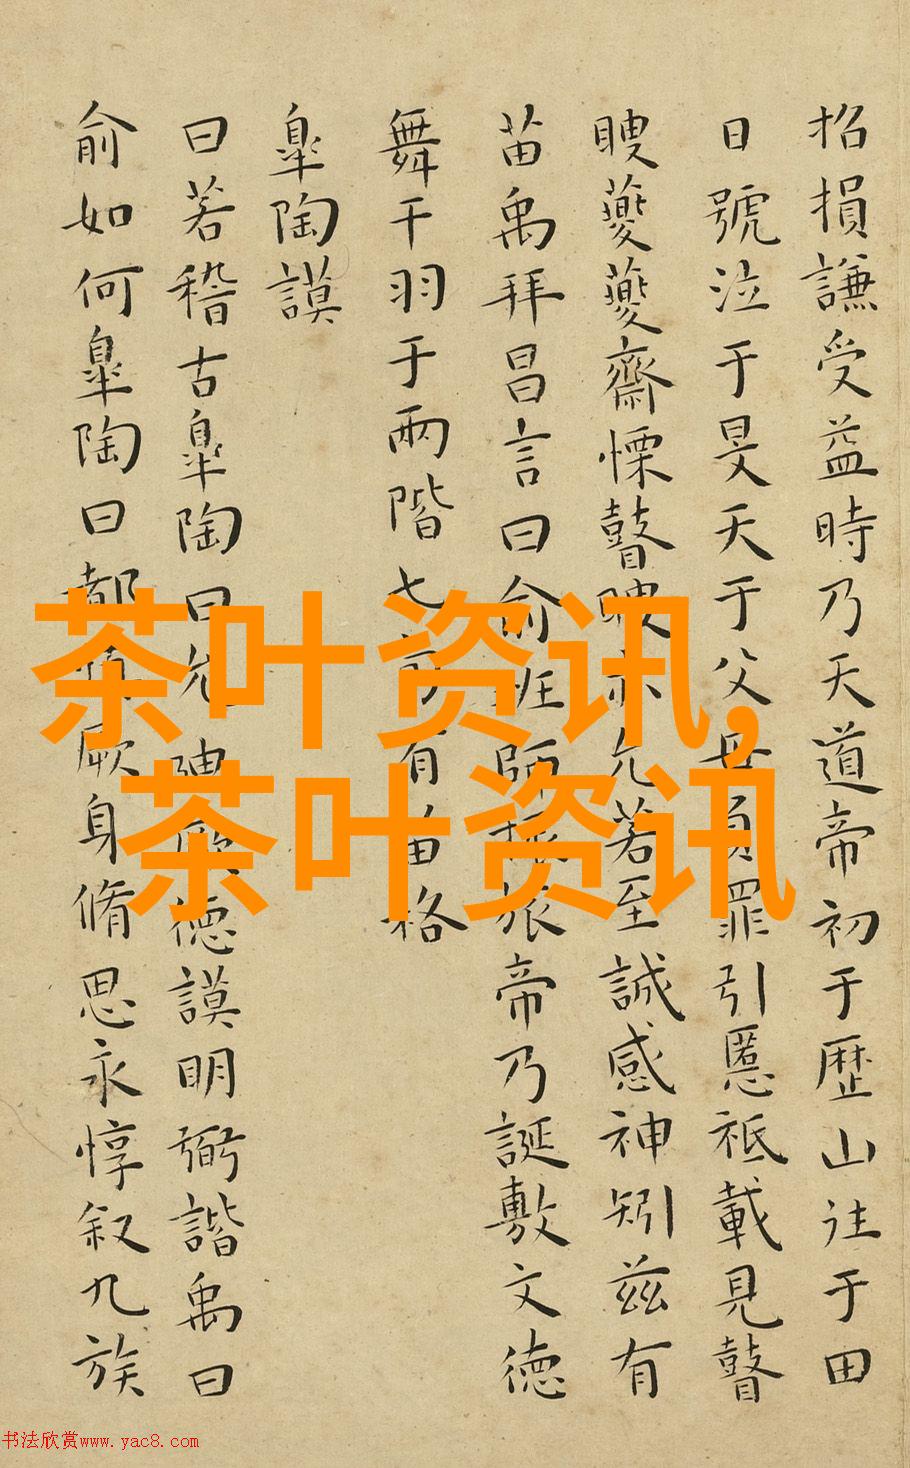 招損謙受益時乃天道帝初于歷山往于田
日號泣于旻天于父母負罪引慝祗載見瞽
瞍夔夔齋慄瞽瞍亦允若至誠感神矧茲有
苗禹拜昌言曰俞班師振旅帝乃誕敷文德
舞干羽于兩階七旬有苗格
皐陶謨
曰若稽古皐陶曰允迪厥德謨明弼諧禹曰
俞如何皐陶曰都慎厥身脩思永惇叙九族
茶叶资讯,
茶叶资讯
书法欣赏www.yac8.com